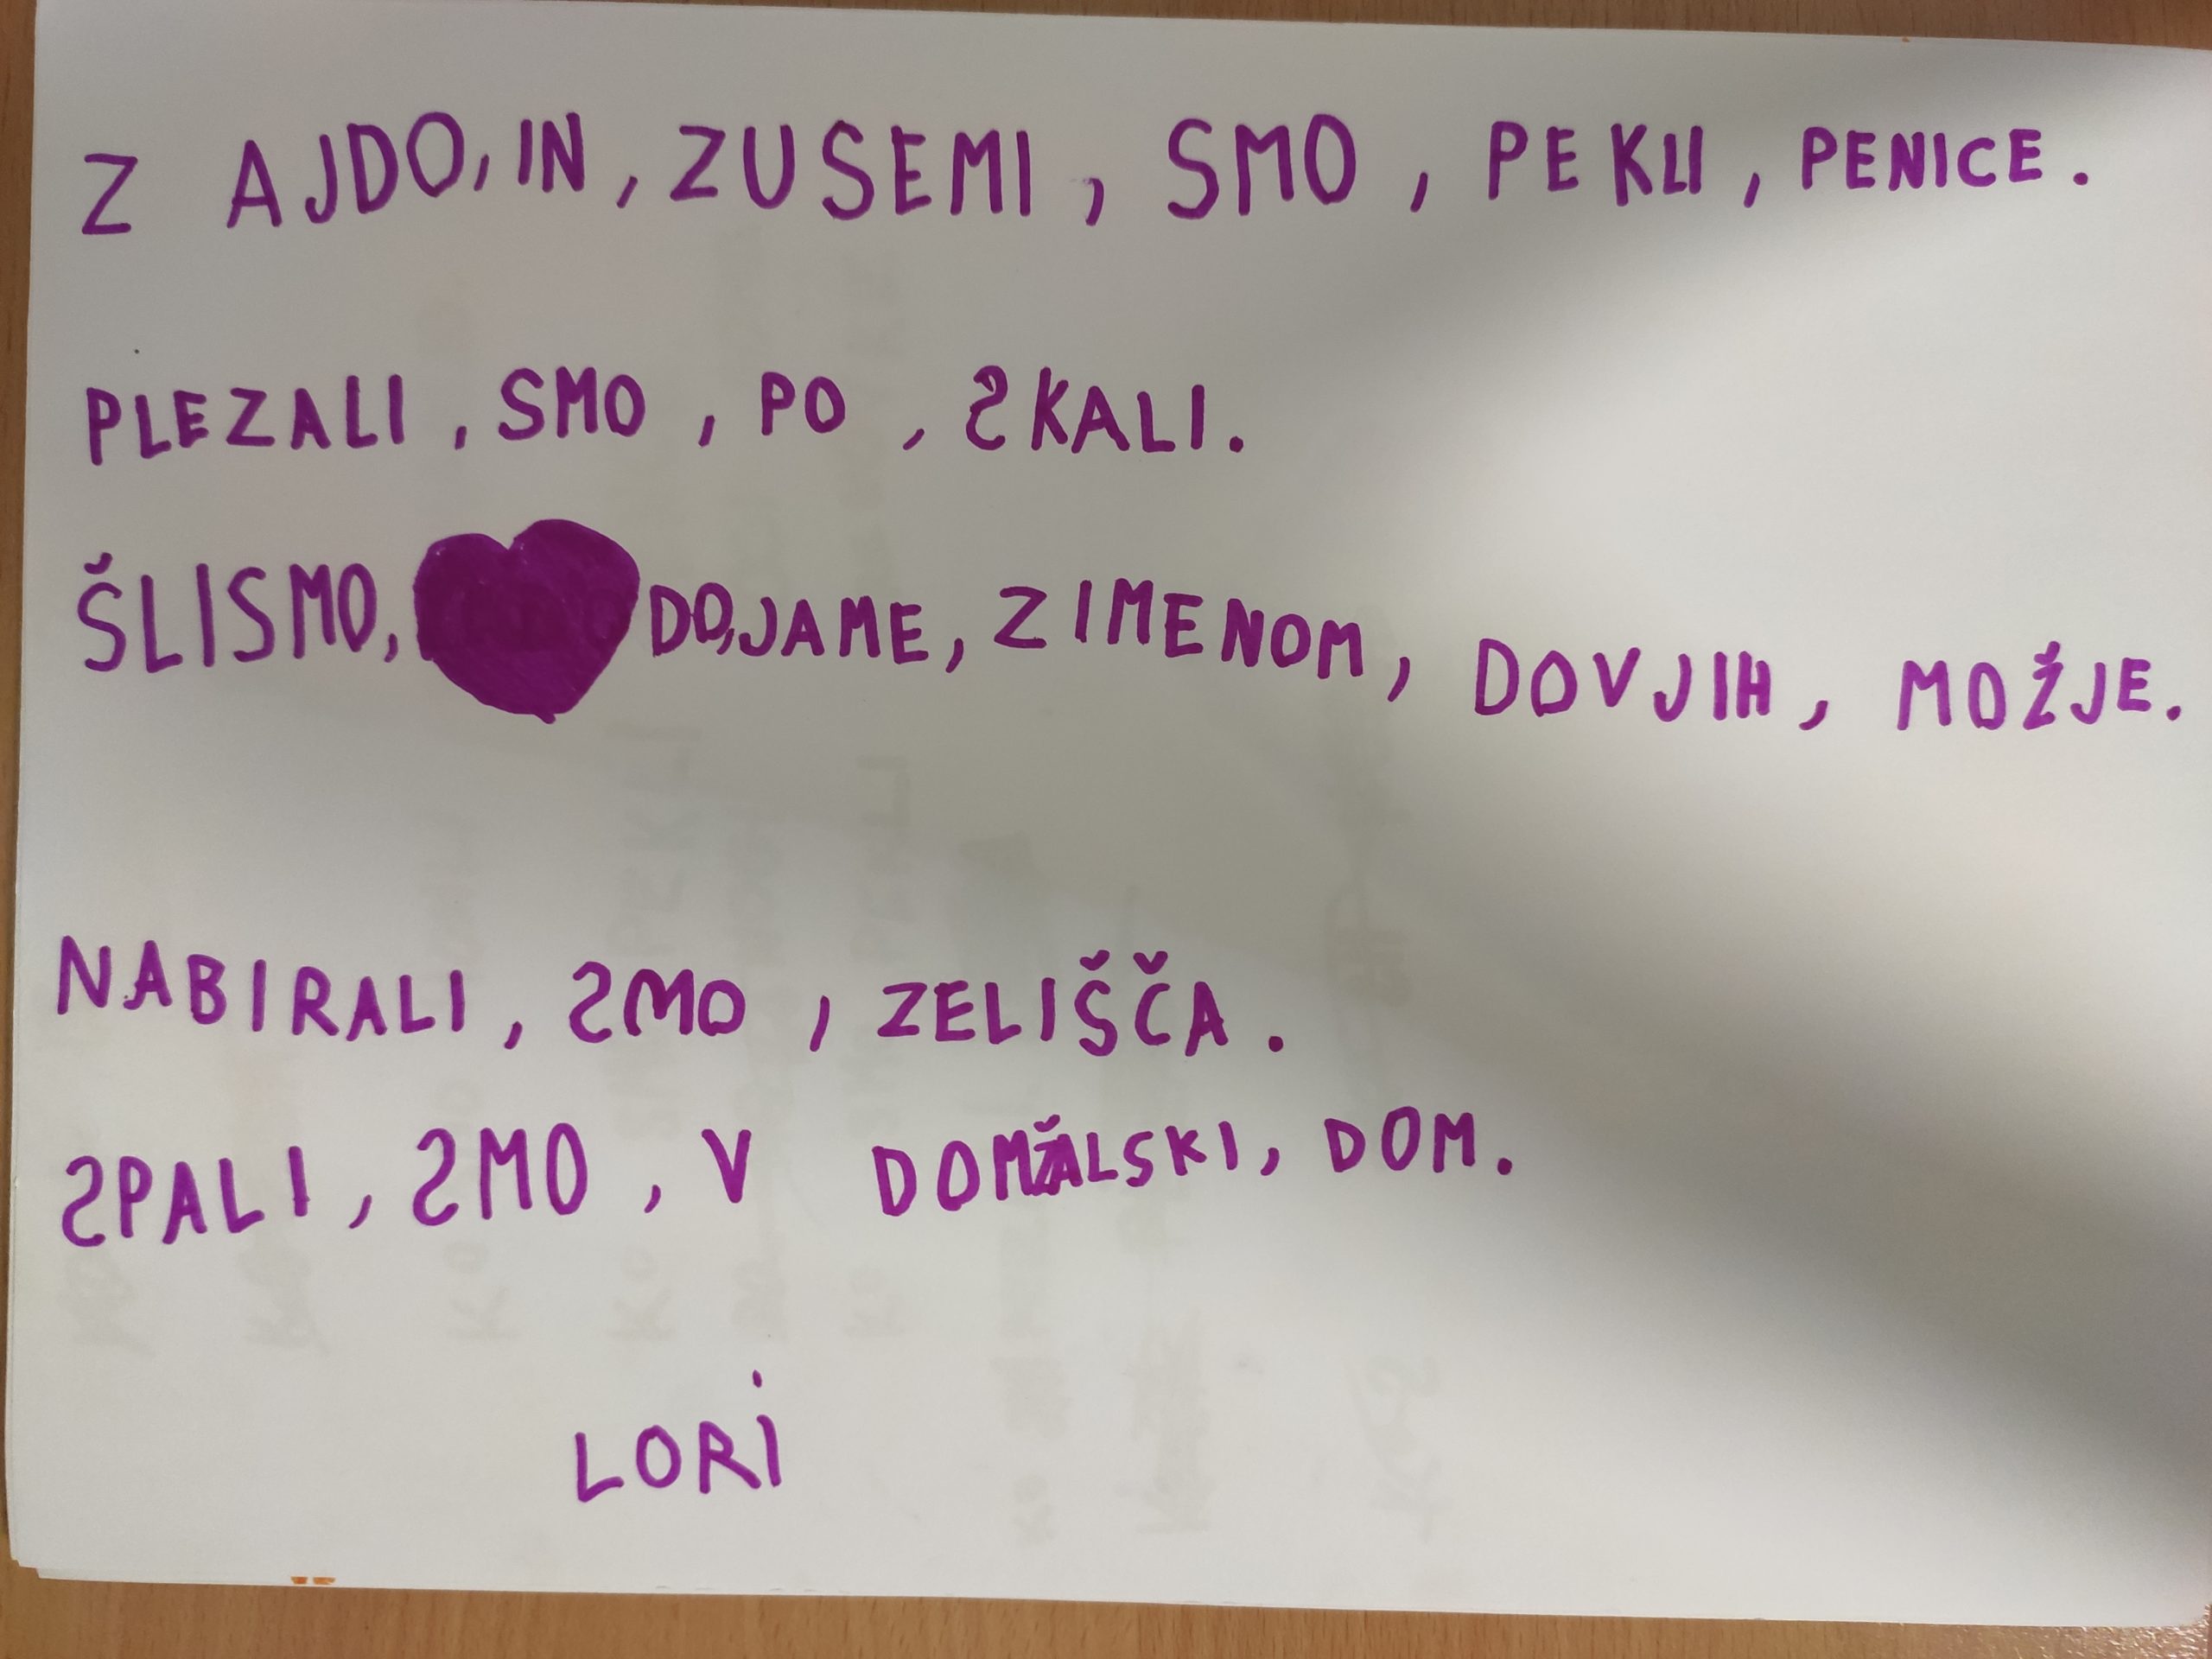 Z AJDO, IN, ZUSEMI, SMO, PEKLI, PENICE.
PLEZALI, SMO, PO, SKALI.
ŠLISMO, DO,JAME, ZIMENOM, DOVJIH, MOŽJE.
NABIRALI, SMO, ZELIŠČA.
SPALI, SMO, V DOMŽALSKI, DOM.
LORI